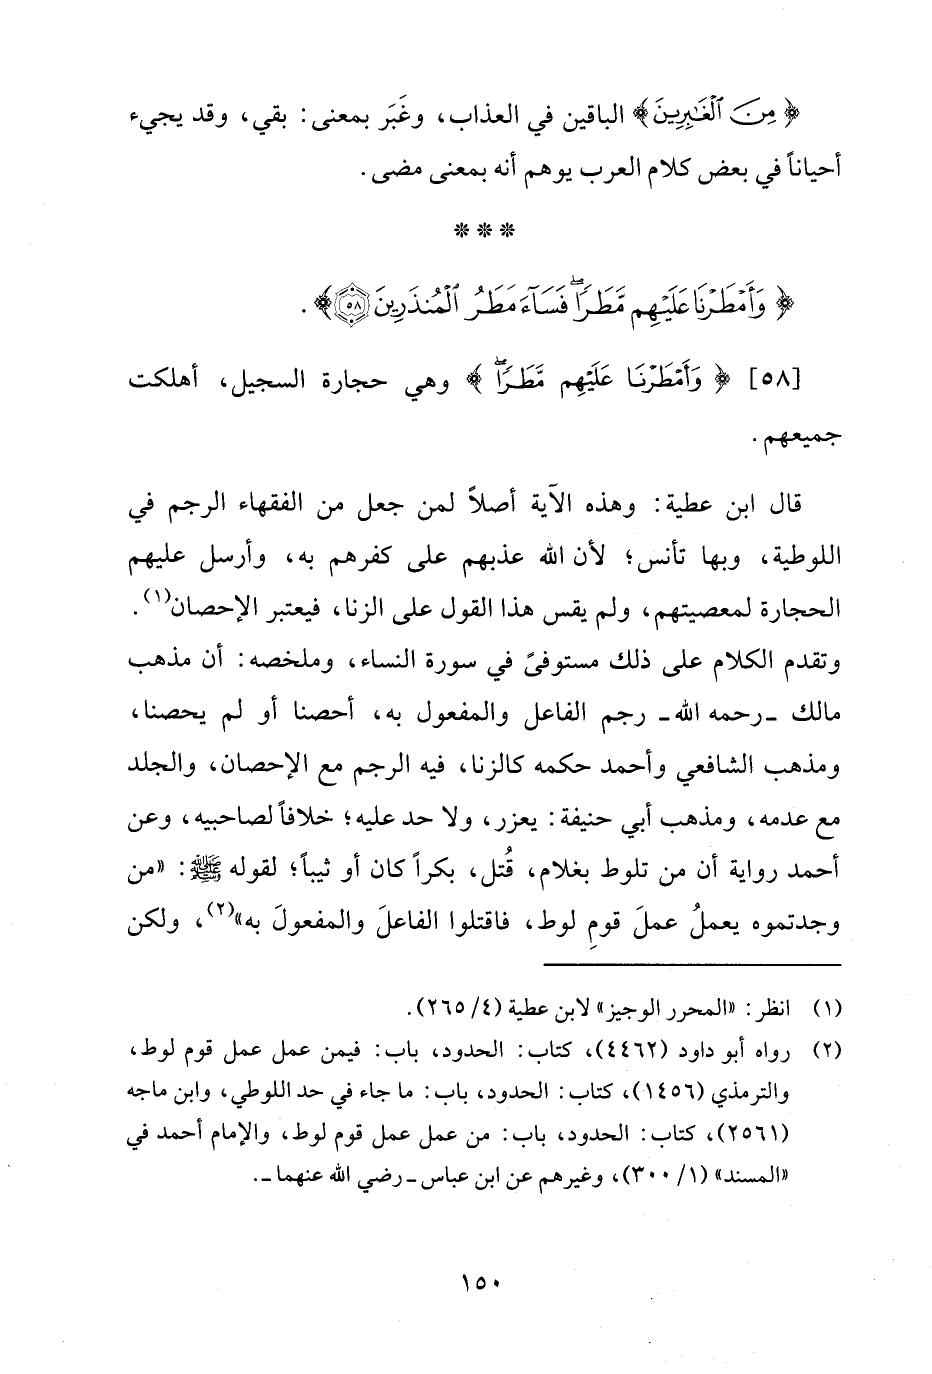 ﴿مِنَ ٱلْغَٰبِرِينَ﴾ الباقين في العذاب، وغَبَر بمعنى: بقي، وقد يجيء
أحياناً في بعض كلام العرب يوهم أنه بمعنى مضى.
* * *
﴿وَأَمْطَرْنَا عَلَيْهِم مَّطَرًا ۖ فَسَآءَ مَطَرُ ٱلْمُنذَرِينَ ٥٨﴾.
[٥٨] ﴿وَأَمْطَرْنَا عَلَيْهِم مَّطَرًا ۖ﴾ وهي حجارة السجيل، أهلكت
جميعهم.
قال ابن عطية: وهذه الآية أصلاً لمن جعل من الفقهاء الرجم في
اللوطية، وبها تأنس؛ لأن الله عذبهم على كفرهم به، وأرسل عليهم
الحجارة لمعصيتهم، ولم يقس هذا القول على الزنا، فيعتبر الإحصان(١).
وتقدم الكلام على ذلك مستوفىً في سورة النساء، وملخصه: أن مذهب
مالك ـ رحمه الله ـ رجم الفاعل والمفعول به، أحصنا أو لم يحصنا،
ومذهب الشافعي وأحمد حكمه كالزنا، فيه الرجم مع الإحصان، والجلد
مع عدمه، ومذهب أبي حنيفة: يعزر، ولا حد عليه؛ خلافاً لصاحبيه، وعن
أحمد رواية أن من تلوط بغلام، قُتل، بكراً كان أو ثيباً؛ لقوله ﷺ: «من
وجدتموه يعملُ عملَ قومِ لوط، فاقتلوا الفاعلَ والمفعولَ به»(٢)، ولكن
(١) انظر: «المحرر الوجيز» لابن عطية (٤/ ٢٦٥).
(٢) رواه أبو داود (٤٤٦٢)، كتاب: الحدود، باب: فيمن عمل عمل قوم لوط،
والترمذي (١٤٥٦)، كتاب: الحدود، باب: ما جاء في حد اللوطي، وابن ماجه
(٢٥٦١)، كتاب: الحدود، باب: من عمل عمل قوم لوط، والإمام أحمد في
«المسند» (١/ ٣٠٠)، وغيرهم عن ابن عباس ـ رضي الله عنهما ـ.
١٥٠